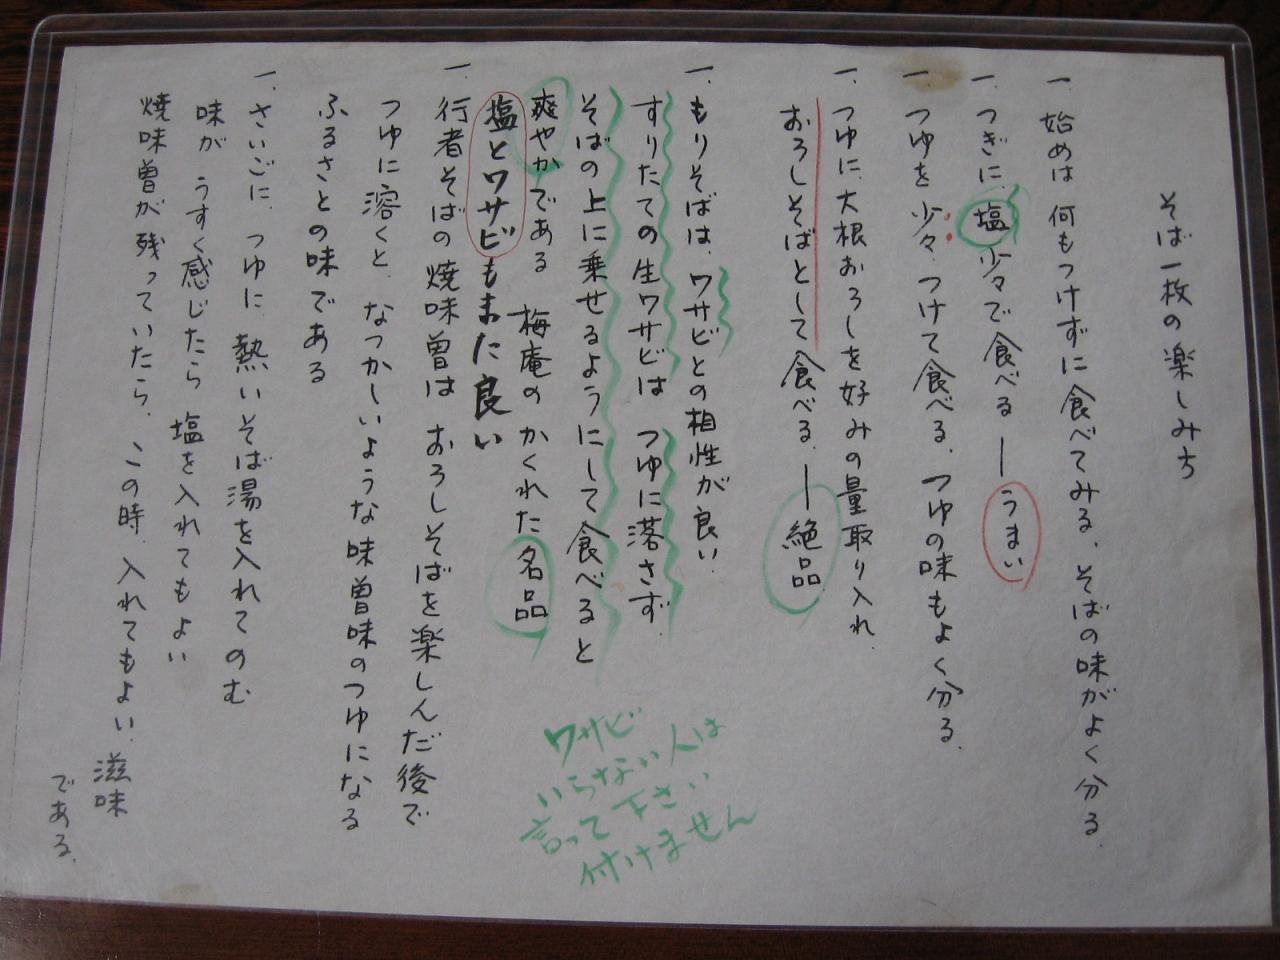 そば一枚の楽しみち
一 始めは 何もつけずに食べてみる、そばの味がよく分る
一、つぎに、塩少々で食べる ― うまい
一 つゆを少々、つけて食べる、つゆの味もよく分る、
一、つゆに、大根おろしを好みの量取り入れ
おろしそばとして食べる、― 絶品
一、もりそばは、ワサビとの相性が良い、
すりたての生ワサビは つゆに落さず
そばの上に乗せるようにして食べると
爽やかである 梅庵の かくれた名品
塩とワサビもまた良い
一、行者そばの焼味曽は おろしそばを楽しんだ後で
つゆに溶くと、なつかしいような味曽味のつゆになる
ふるさとの味である
一、さいごに、つゆに、熱いそば湯を入れてのむ
味が うすく感じたら 塩を入れてもよい
焼味曽が残っていたら、この時、入れてもよい、滋味
である、
ワサビ
いらない人は
言って下さい
付けません